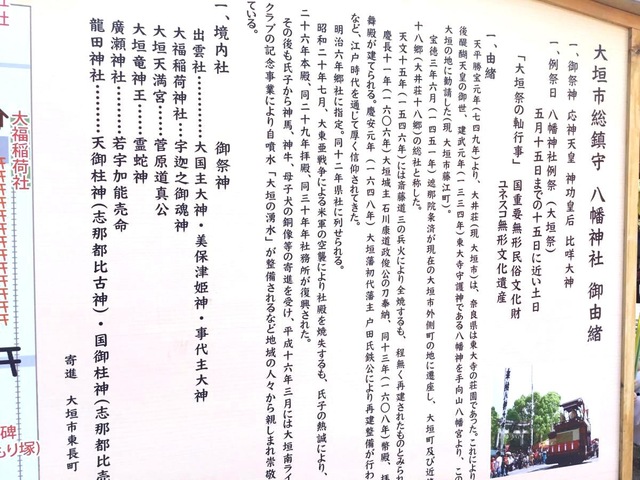 大垣市総鎮守 八幡神社 御由緒
一、御祭神 応神天皇 神功皇后 比咩大神
一、例祭日 八幡神社例祭（大垣祭）
五月十五日までの十五日に近い土日
「大垣祭の軕行事」 国重要無形民俗文化財
ユネスコ無形文化遺産
一、由緒
天平勝宝元年（七四九年）より、大井荘（現 大垣市）は、奈良県は東大寺の荘園であった。これにより
後醍醐天皇の御世、建武元年（一三三四年）東大寺守護神である八幡神を手向山八幡宮より、この
大垣の地に勧請した（現 大垣市藤江町）。
宝徳三年六月（一四五一年）遮那院条済が現在の大垣市外側町の地に遷座し、大垣町及び近
十八郷（大井荘十八郷）の総社と称した。
天文十五年（一五四六年）には斎藤道三の兵火により全焼するも、程無く再建されたものとみられ
慶長十一年（一六〇六年）大垣城主 石川康道政俊公の刀奉納、同十三年（一六〇八年）幣殿、拝
舞殿が建てられる。慶安元年（一六四八年）大垣藩初代藩主 戸田氏鉄公により再建整備が行わ
など、江戸時代を通じて厚く信仰されてきた。
明治六年郷社に指定。同十二年県社に列せられる。
昭和二十年七月、大東亜戦争による米軍の空襲により社殿を焼失するも、氏子の熱誠により、
二十六年本殿、同二十九年拝殿、同三十年年社務所が復興された。
その後も氏子から神馬、神牛、母子犬の銅像等の寄進を受け、平成十六年三月には大垣南ライ
クラブの記念事業により自噴水「大垣の湧水」が整備されるなど地域の人々から親しまれ崇敬
ている。
一、境内社 御祭神
出雲社…………大国主大神・美保津姫神・事代主大神
大福稲荷神社…宇迦之御魂神
大垣天満宮……菅原道真公
大垣竜神王……霊蛇神
廣瀬神社………若宇加能売命
龍田神社………天御柱神（志那都比古神）・国御柱神（志那都比売
寄進 大垣市東長町
大福稲荷社
碑
もり塚）